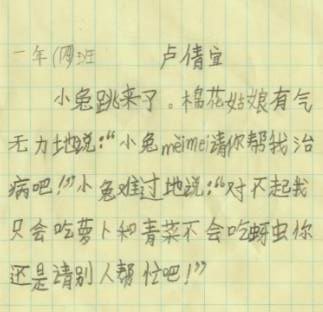 一年(四)班 卢倩宜
小兔跳来了。棉花姑娘有气
无力地说:“小兔mèimei请你帮我治
病吧!”小兔难过地说:“对不起我
只会吃萝卜和青菜不会吃蚜虫你
还是请别人帮忙吧!”